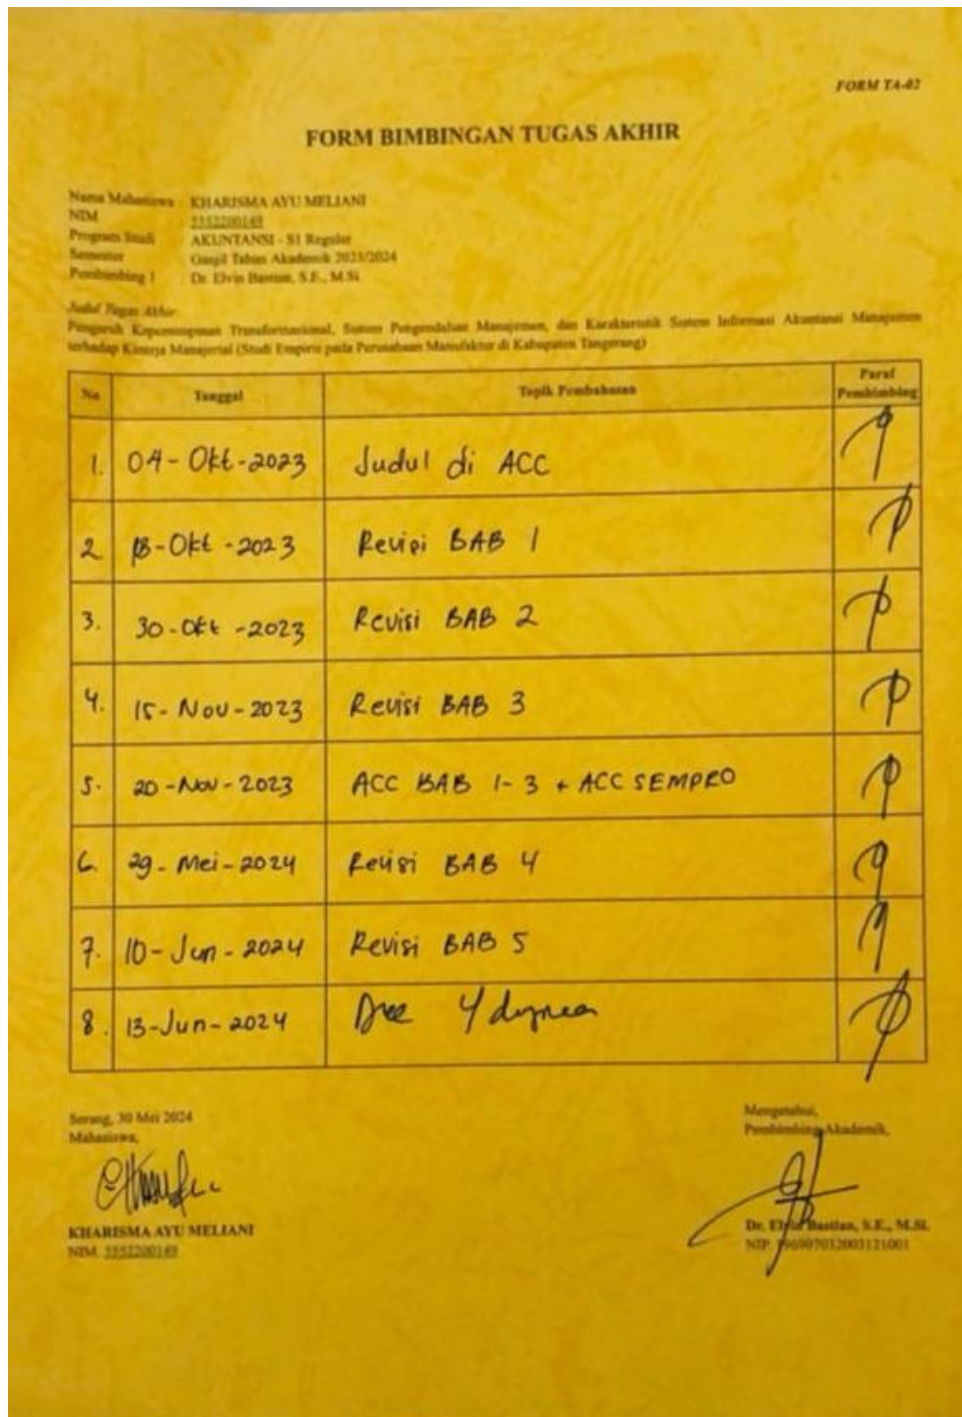 FORM TA-02
FORM BIMBINGAN TUGAS AKHIR
Nama Mahasiswa : KHARISMA AYU MELIANI
NIM : 5552200149
Program Studi : AKUNTANSI - S1 Reguler
Semester : Ganjil Tahun Akademik 2023/2024
Pembimbing 1 : Dr. Elvin Bastian, S.E., M.Si.
Judul Tugas Akhir:
Pengaruh Kepemimpinan Transformasional, Sistem Pengendalian Manajemen, dan Karakteristik Sistem Informasi Akuntansi Manajemen
terhadap Kinerja Manajerial (Studi Empiris pada Perusahaan Manufaktur di Kabupaten Tangerang)
No Tanggal Topik Pembahasan Paraf Pembimbing
1. 04-Okt-2023 Judul di ACC
2. 18-Okt-2023 Revisi BAB 1
3. 30-Okt-2023 Revisi BAB 2
4. 15-Nov-2023 Revisi BAB 3
5. 20-Nov-2023 ACC BAB 1-3 + ACC SEMPRO
6. 29-Mei-2024 Revisi BAB 4
7. 10-Jun-2024 Revisi BAB 5
8. 13-Jun-2024
Serang, 30 Mei 2024
Mahasiswa,
KHARISMA AYU MELIANI
NIM. 5552200149
Mengetahui,
Pembimbing Akademik,
Dr. Elvin Bastian, S.E., M.Si.
NIP. 196907032003121001